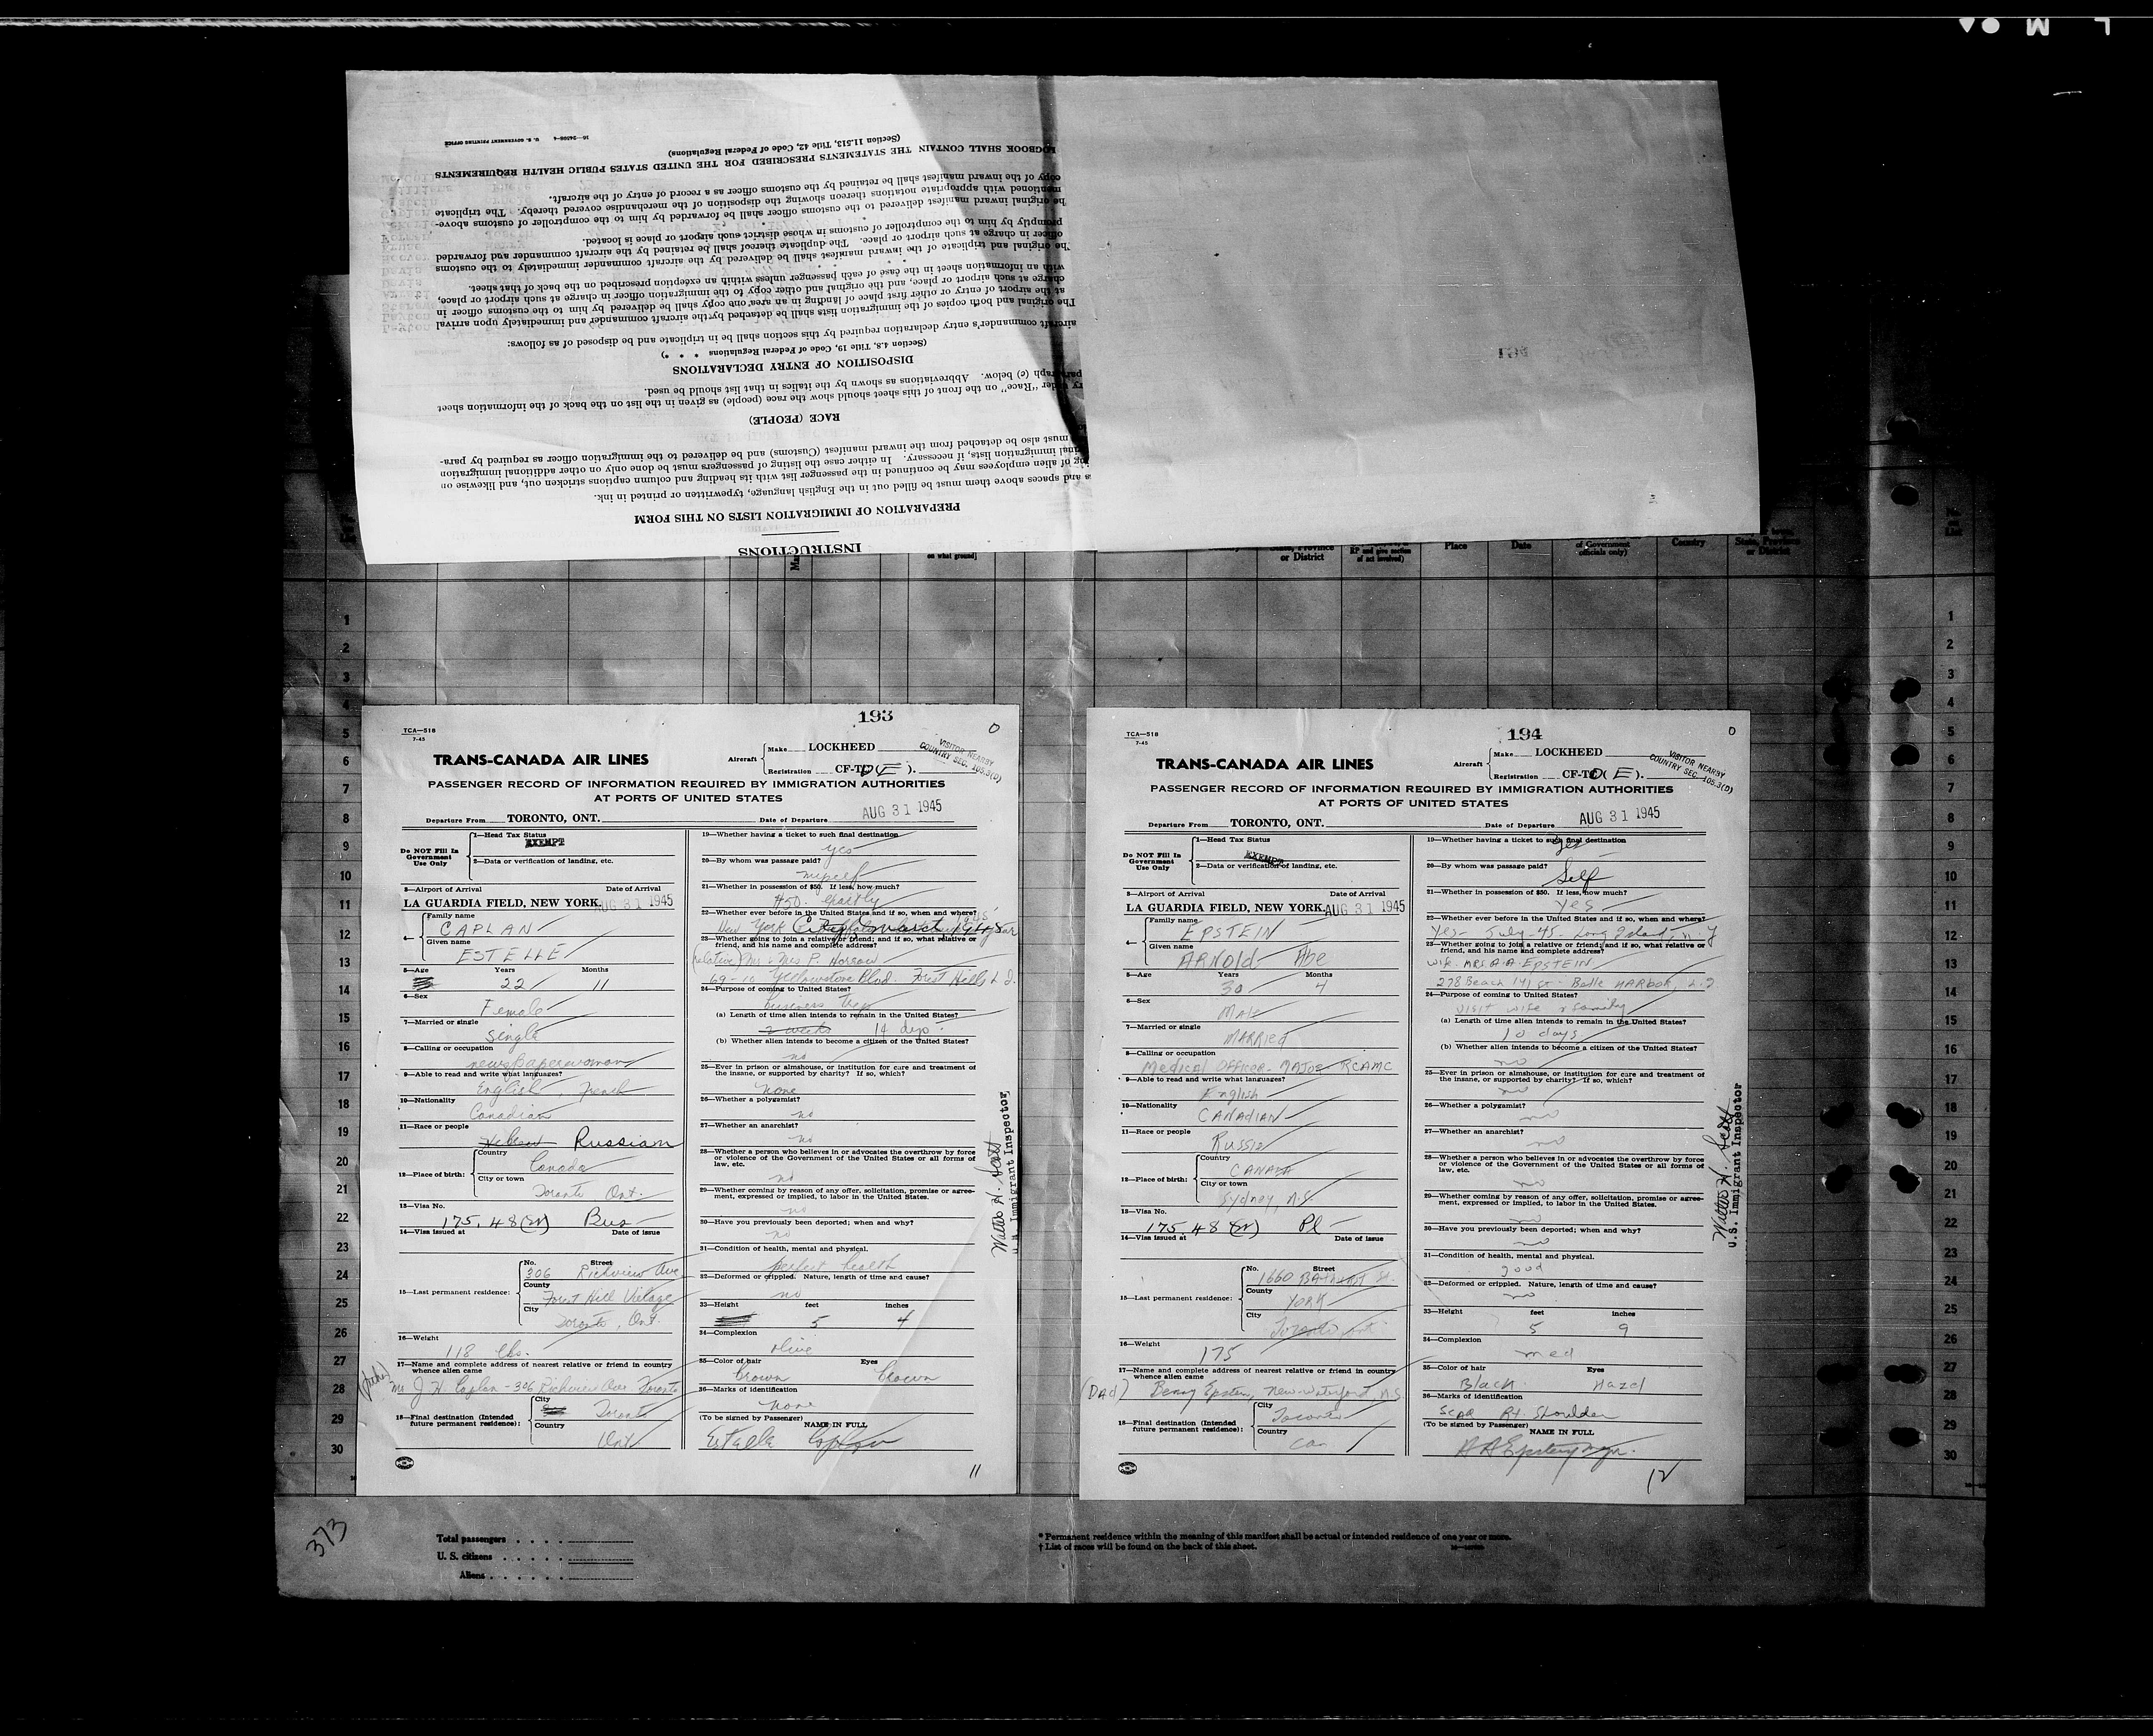 INSTRUCTIONS
PREPARATION OF IMMIGRATION LISTS ON THIS FORM
s and spaces above them must be filled out in the English language, typewritten or printed in ink.
ing of alien employees may be continued in the passenger list with its heading and column captions stricken out, and likewise on
inal immigration lists, if necessary. In either case the listing of passengers must be done only on other additional immigration
must also be detached from the inward manifest (Customs) and be delivered to the immigration officer as required by para-
RACE (PEOPLE)
ry under "Race" on the front of this sheet should show the race (people) as given in the list on the back of the information sheet
paragraph (e) below. Abbreviations as shown by the italics in that list should be used.
DISPOSITION OF ENTRY DECLARATIONS
(Section 4.8, Title 19, Code of Federal Regulations * * *)
aircraft commander's entry declaration required by this section shall be in triplicate and be disposed of as follows:
The original and both copies of the immigration lists shall be detached by the aircraft commander and immediately upon arrival
at the airport of entry or other first place of landing in an area one copy shall be delivered by him to the customs officer in
charge at such airport or place, and the original and other copy to the immigration officer in charge at such airport or place,
with an information sheet in the case of each passenger unless within an exception prescribed on the back of that sheet.
The original and triplicate of the inward manifest shall be delivered by the aircraft commander immediately to the customs
officer in charge at such airport or place. The duplicate thereof shall be retained by the aircraft commander and forwarded
promptly by him to the comptroller of customs in whose district such airport or place is located.
he original inward manifest delivered to the customs officer shall be forwarded by him to the comptroller of customs above-
mentioned with appropriate notations thereon showing the disposition of the merchandise covered thereby. The triplicate
copy of the inward manifest shall be retained by the customs officer as a record of entry of the aircraft.
LOGBOOK SHALL CONTAIN THE STATEMENTS PRESCRIBED FOR THE UNITED STATES PUBLIC HEALTH REQUIREMENTS
(Section 11.513, Title 42, Code of Federal Regulations)
U. S. GOVERNMENT PRINTING OFFICE
on what ground]
or District
RP and give section
of act involved)
Place
Date
of Government
officials only)
Country
State, Province
or District
193
0
TCA—518
7-45
TRANS-CANADA AIR LINES
Aircraft
Make LOCKHEED
Registration CF-T (E).
VISITOR NEARBY
COUNTRY SEC. 105.3(D)
PASSENGER RECORD OF INFORMATION REQUIRED BY IMMIGRATION AUTHORITIES
AT PORTS OF UNITED STATES
Departure From TORONTO, ONT. Date of Departure AUG 31 1945
Do NOT Fill In
Government
Use Only
1—Head Tax Status
EXEMPT
2—Data or verification of landing, etc.
3—Airport of Arrival Date of Arrival
LA GUARDIA FIELD, NEW YORK. AUG 31 1945
4—
Family name
CAPLAN
Given name
ESTELLE
5—Age Years Months
22 11
6—Sex
Female
7—Married or single
Single
8—Calling or occupation
newspaperwoman
9—Able to read and write what languages?
English, French
10—Nationality
Canadian
11—Race or people
Hebrew Russian
12—Place of birth:
Country
Canada
City or town
Toronto Ont.
13—Visa No.
175.48 (2) Bus
14—Visa issued at Date of issue
15—Last permanent residence:
No. Street
306 Richview Ave
County
Forest Hill Village
City
Toronto, Ont.
16—Weight
118 lbs.
17—Name and complete address of nearest relative or friend in country
whence alien came
(father) Mr J H Caplan - 306 Richview Ave. Toronto
18—Final destination (Intended
future permanent residence):
City
Toronto
Country
Ont
19—Whether having a ticket to such final destination
yes
20—By whom was passage paid?
myself
21—Whether in possession of $50. If less, how much?
$50. exactly
22—Whether ever before in the United States and if so, when and where?
New York City
23—Whether going to join a relative or friend; and if so, what relative or
friend, and his name and complete address?
(relative) Mr & Mrs P.
69-10 Yellowstone Blvd. Forest Hills L.I.
24—Purpose of coming to United States?
business trip
(a) Length of time alien intends to remain in the United States?
2 weeks 14 dys.
(b) Whether alien intends to become a citizen of the United States?
no
25—Ever in prison or almshouse, or institution for care and treatment of
the insane, or supported by charity? If so, which?
none
26—Whether a polygamist?
no
27—Whether an anarchist?
no
28—Whether a person who believes in or advocates the overthrow by force
or violence of the Government of the United States or all forms of
law, etc.
no
29—Whether coming by reason of any offer, solicitation, promise or agree-
ment, expressed or implied, to labor in the United States.
no
30—Have you previously been deported; when and why?
no
31—Condition of health, mental and physical.
perfect health
32—Deformed or crippled. Nature, length of time and cause?
no
33—Height feet inches
5 4
34—Complexion
olive
35—Color of hair Eyes
brown brown
36—Marks of identification
none
(To be signed by Passenger) NAME IN FULL
Estelle Caplan
11
Immigrant Inspector
194
0
TCA—518
7-45
TRANS-CANADA AIR LINES
Aircraft
Make LOCKHEED
Registration CF-T (E).
VISITOR NEARBY
COUNTRY SEC. 105.3(D)
PASSENGER RECORD OF INFORMATION REQUIRED BY IMMIGRATION AUTHORITIES
AT PORTS OF UNITED STATES
Departure From TORONTO, ONT. Date of Departure AUG 31 1945
Do NOT Fill In
Government
Use Only
1—Head Tax Status
EXEMPT
2—Data or verification of landing, etc.
3—Airport of Arrival Date of Arrival
LA GUARDIA FIELD, NEW YORK. AUG 31 1945
4—
Family name
EPSTEIN
Given name
ARNOLD Abe
5—Age Years Months
30 4
6—Sex
Male
7—Married or single
MARRIED
8—Calling or occupation
Medical Officer - MAJOR RCAMC
9—Able to read and write what languages?
English
10—Nationality
CANADIAN
11—Race or people
Russia
12—Place of birth:
Country
CANADA
City or town
Sydney, N.S.
13—Visa No.
175.48 (2) Pl
14—Visa issued at Date of issue
15—Last permanent residence:
No. Street
1660 BATHURST St.
County
YORK
City
Toronto Ont
16—Weight
175
17—Name and complete address of nearest relative or friend in country
whence alien came
(DAD) Benny Epstein, New-Waterford, N.S.
18—Final destination (Intended
future permanent residence):
City
Toronto
Country
Can
19—Whether having a ticket to such final destination
yes
20—By whom was passage paid?
Self
21—Whether in possession of $50. If less, how much?
yes
22—Whether ever before in the United States and if so, when and where?
Yes - July-45 - Long Island, N.Y
23—Whether going to join a relative or friend; and if so, what relative or
friend, and his name and complete address?
wife MRS. A.A. EPSTEIN
278 Beach 141 St - Belle HARBOR, L.I
24—Purpose of coming to United States?
Visit wife & family
(a) Length of time alien intends to remain in the United States?
10 days
(b) Whether alien intends to become a citizen of the United States?
no
25—Ever in prison or almshouse, or institution for care and treatment of
the insane, or supported by charity? If so, which?
no
26—Whether a polygamist?
no
27—Whether an anarchist?
no
28—Whether a person who believes in or advocates the overthrow by force
or violence of the Government of the United States or all forms of
law, etc.
no
29—Whether coming by reason of any offer, solicitation, promise or agree-
ment, expressed or implied, to labor in the United States.
no
30—Have you previously been deported; when and why?
no
31—Condition of health, mental and physical.
good
32—Deformed or crippled. Nature, length of time and cause?
no
33—Height feet inches
5 9
34—Complexion
med
35—Color of hair Eyes
Black Hazel
36—Marks of identification
Scar Rt Shoulder
(To be signed by Passenger) NAME IN FULL
A A Epstein Major.
12
U.S. Immigrant Inspector
373
Total passengers
U. S. citizens
Aliens
* Permanent residence within the meaning of this manifest shall be actual or intended residence of one year or more.
† List of races will be found on the back of this sheet.